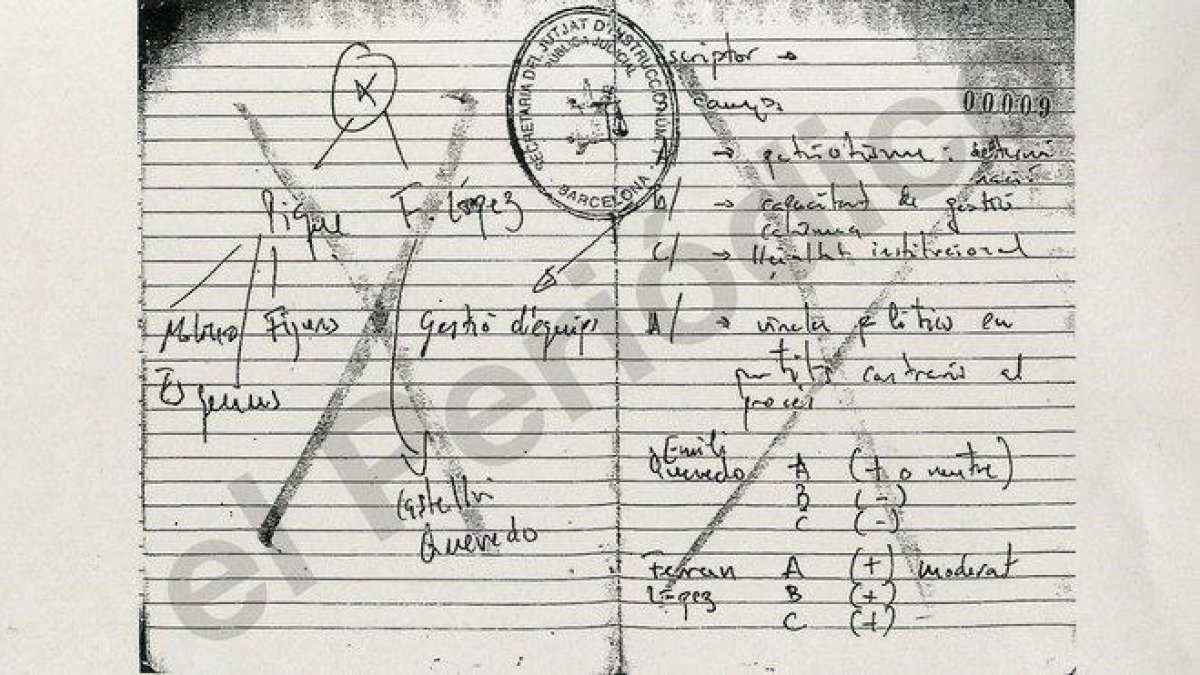 A
Piqué F. López
Figueras
Gestió d'equips
Castellví
Quevedo
SECRETARIA DEL JUTJAT D'INSTRUCCIÓ NÚM. 1
PÚBLICA JUDICIAL
BARCELONA
escriptor →
camps.
00009
A → patriotisme: determi
nació
B/ → capacitat de gestió
C/ → lleialtat institucional
A/ → vincle político en
partits contraris al
procés
Emili
Quevedo A (+ o neutre)
B (-)
C (-)
Ferran A (+) moderat
López B (+)
C (+)
el Periódico